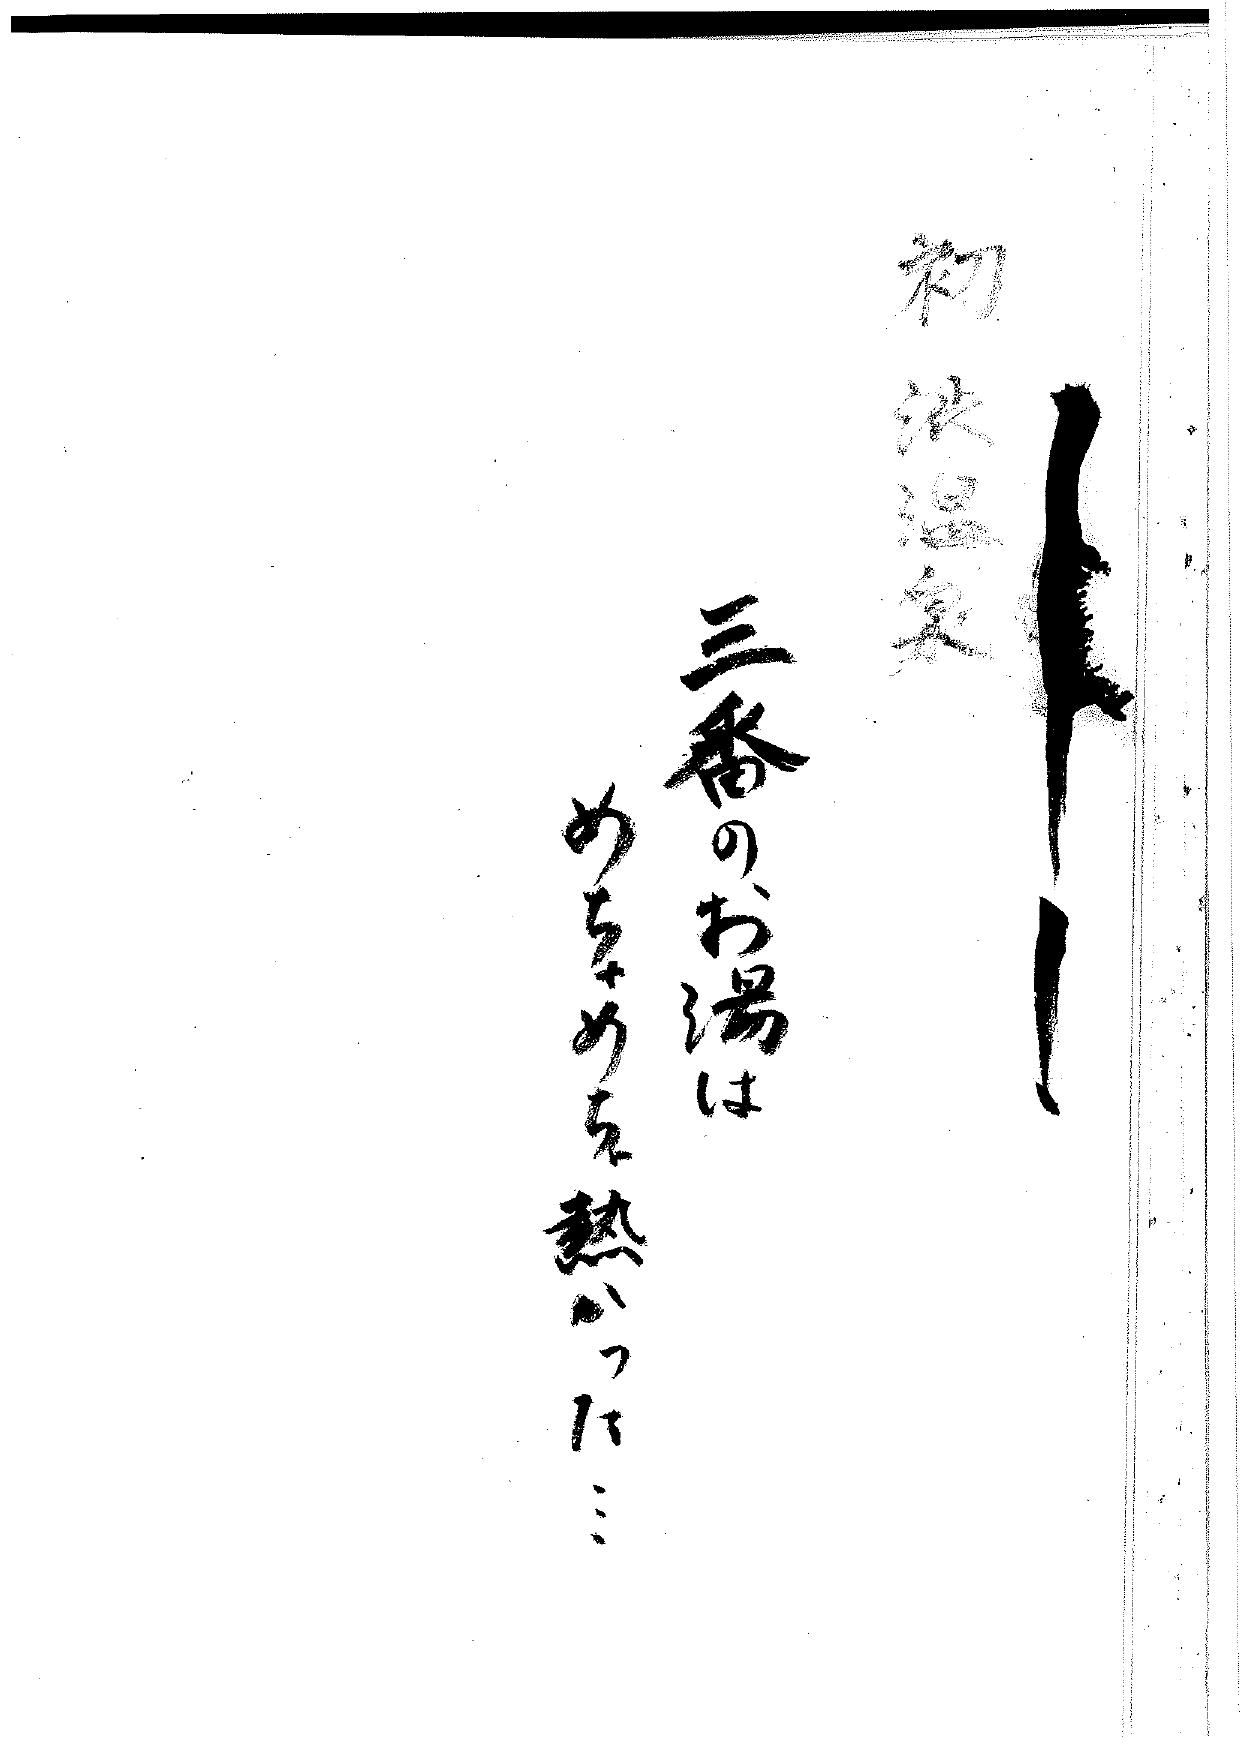 初 渋温泉
三番のお湯は
めちゃめちゃ熱かった…